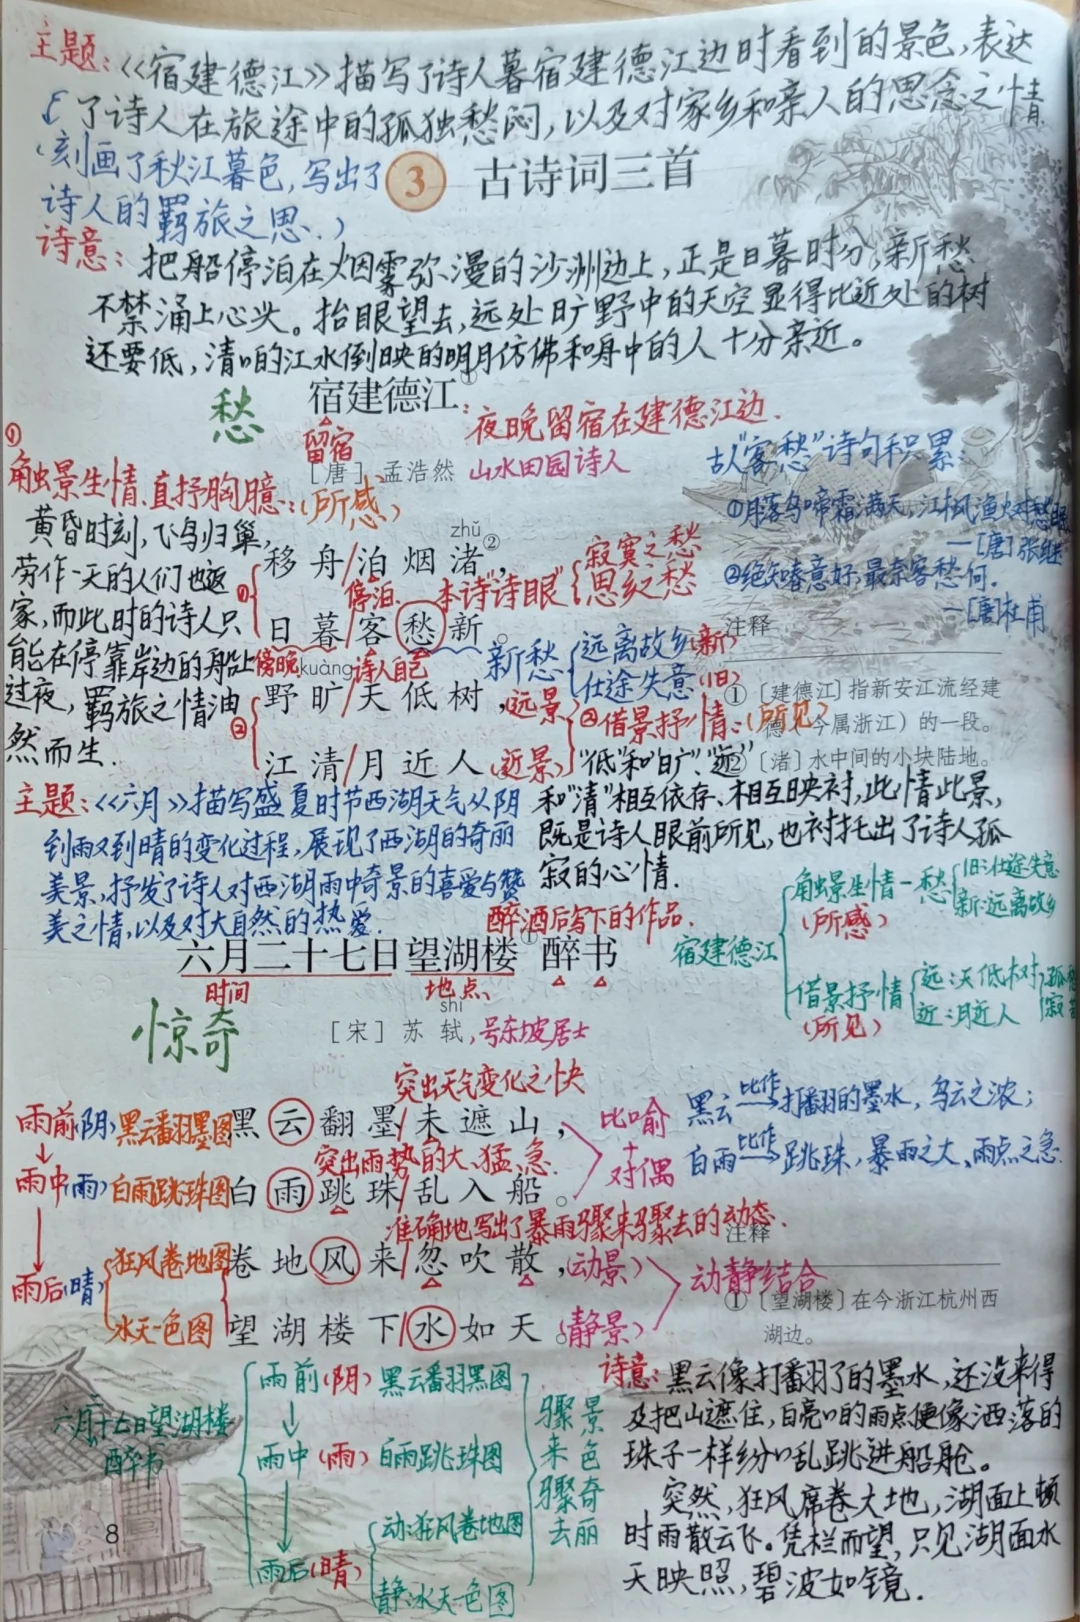 主题:《宿建德江》描写了诗人暮宿建德江边时看到的景色,表达
了诗人在旅途中的孤独愁闷,以及对家乡和亲人的思念之情.
(刻画了秋江暮色,写出了
诗人的羁旅之思.)
3 古诗词三首
诗意:把船停泊在烟雾弥漫的沙洲边上,正是日暮时分,新愁
不禁涌上心头。抬眼望去,远处旷野中的天空显得比近处的树
还要低,清清的江水倒映的明月仿佛和舟中的人十分亲近。
愁
宿建德江①:夜晚留宿在建德江边.
留宿
[唐] 孟浩然 山水田园诗人
①
触景生情、直抒胸臆:(所感)
黄昏时刻,飞鸟归巢,
劳作一天的人们也返
家,而此时的诗人只
能在停靠岸边的船上
过夜,羁旅之情油
然而生.
古人“客愁”诗句积累:
①月落乌啼霜满天,江枫渔火对愁眠
—[唐]张继
②绝知春意好,最奈客愁何.
—[唐]杜甫
zhǔ
移舟/泊烟渚②,
停泊
本诗“诗眼” 寂寞之愁
思乡之愁
①
日暮客愁新。
傍晚
诗人自己
新愁 远离故乡(新)
仕途失意(旧)
kuàng
野旷/天低树,(远景)
②
江清/月近人。(近景)
②借景抒情:(所见)
“低”和“旷”、“近”
和“清”相互依存、相互映衬,此情此景,
既是诗人眼前所见,也衬托出了诗人孤
寂的心情.
注释
① 〔建德江〕指新安江流经建
德(今属浙江)的一段。
② 〔渚〕水中间的小块陆地。
主题:《六月》描写盛夏时节西湖天气从阴
到雨又到晴的变化过程,展现了西湖的奇丽
美景,抒发了诗人对西湖雨中奇景的喜爱与赞
美之情,以及对大自然的热爱.
宿建德江
触景生情—愁 旧:仕途失意
(所感) 新:远离故乡
借景抒情 远:天低树
(所见) 近:月近人
孤
寂
醉酒后写下的作品.
六月二十七日望湖楼①醉书
时间 地点
惊奇
shì
[宋] 苏轼,号东坡居士
突出天气变化之快
雨前(阴) 黑云翻墨图 黑云翻墨/未遮山,
突出雨势的大、猛、急.
雨中(雨) 白雨跳珠图 白雨跳珠/乱入船。
比喻
+
对偶
黑云 比作 打翻的墨水,乌云之浓;
白雨 比作 跳珠,暴雨之大、雨点之急.
准确地写出了暴雨骤来骤去的动态.
雨后(晴)
狂风卷地图 卷地风来/忽吹散,(动景)
水天一色图 望湖楼下/水如天。(静景)
动静结合
注释
① 〔望湖楼〕在今浙江杭州西
湖边。
六月二十七日望湖楼
醉书
雨前(阴) 黑云翻墨图
雨中(雨) 白雨跳珠图
雨后(晴)
动:狂风卷地图
静:水天一色图
骤来骤去
景色奇丽
诗意:黑云像打翻了的墨水,还没来得
及把山遮住,白亮亮的雨点便像洒落的
珠子一样纷纷乱跳进船舱。
突然,狂风席卷大地,湖面上顿
时雨散云飞。凭栏而望,只见湖面水
天映照,碧波如镜.
8